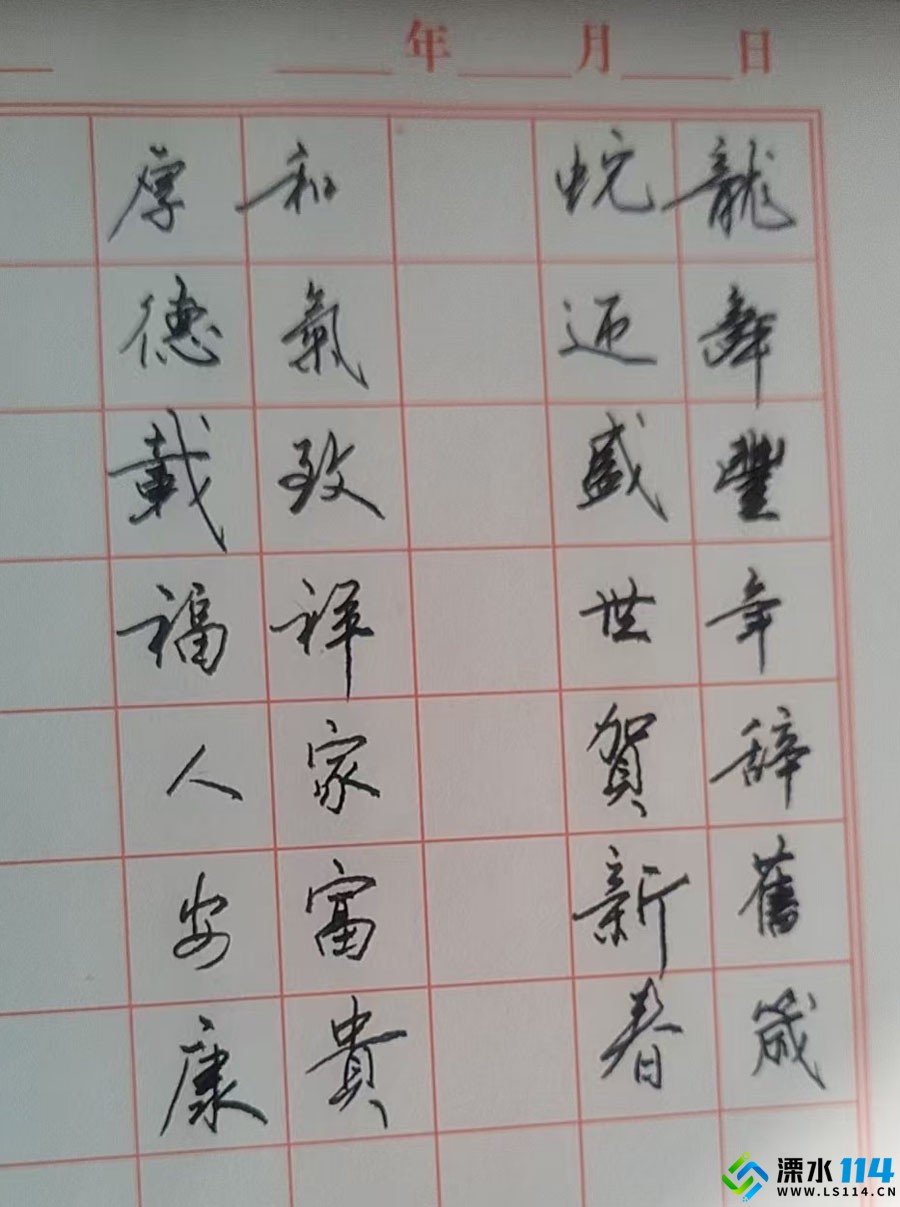 年 月 日
龍舞豐年辞舊歲
蛇迎盛世賀新春
和氣致祥家富貴
厚德載福人安康
溧水114
WWW.LS114.CN